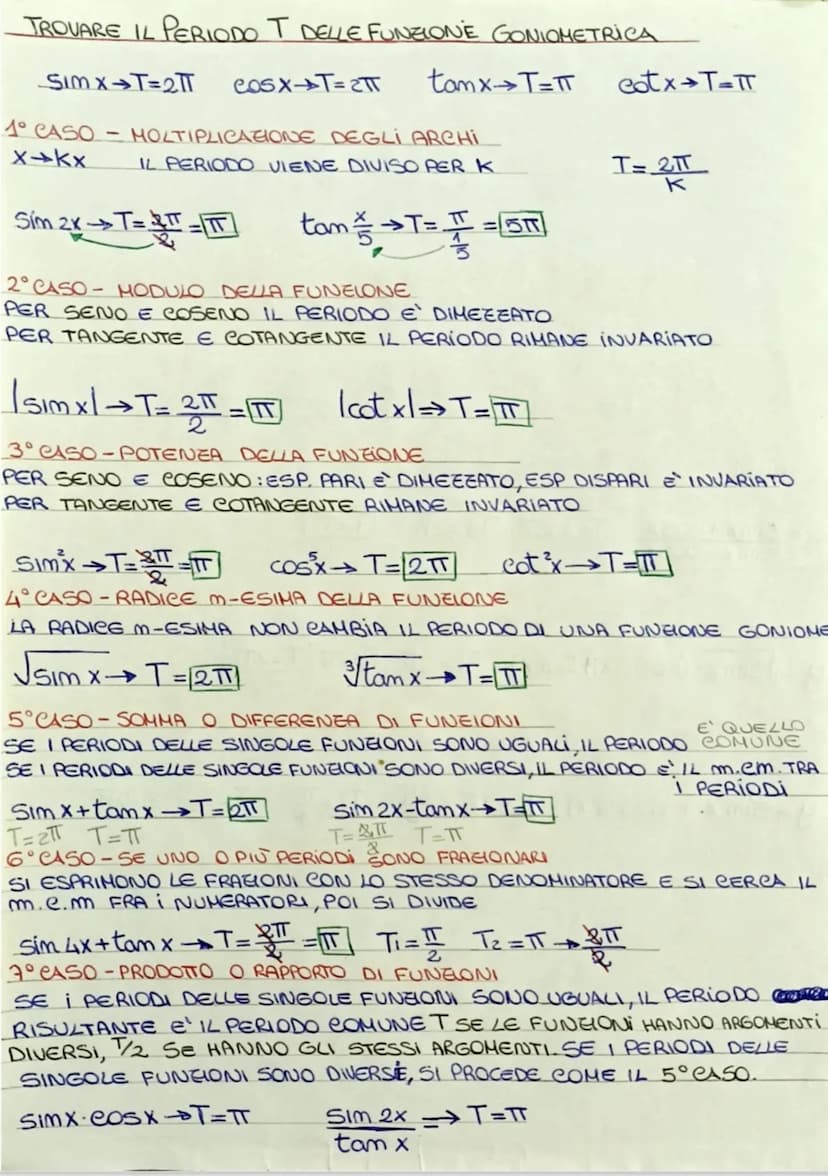 TROVARE IL PERIODO T DELLE FUNZIONE GONIOMETRICA
sin x → T = 2π cos x → T = 2π tan x → T = π cot x → T = π
1° CASO - MOLTIPLICAZIONE DEGLI ARCHI
x → kx IL PERIODO VIENE DIVISO PER K T = 2π/K
sin 2x → T = 2π/2 = π tan x/5 → T = π/(1/5) = 5π
2° CASO - MODULO DELLA FUNZIONE
PER SENO E COSENO IL PERIODO E' DIMEZZATO
PER TANGENTE E COTANGENTE IL PERIODO RIMANE INVARIATO
|sin x| → T = 2π/2 = π |cot x| ⇒ T = π
3° CASO - POTENZA DELLA FUNZIONE
PER SENO E COSENO: ESP. PARI E' DIMEZZATO, ESP DISPARI E' INVARIATO
PER TANGENTE E COTANGENTE RIMANE INVARIATO
sin²x → T = 2π/2 = π cos⁵x → T = 2π cot²x → T = π
4° CASO - RADICE n-ESIMA DELLA FUNZIONE
LA RADICE n-ESIMA NON CAMBIA IL PERIODO DI UNA FUNZIONE GONIOME
√sin x → T = 2π ³√tan x → T = π
5° CASO - SOMMA O DIFFERENZA DI FUNZIONI
SE I PERIODI DELLE SINGOLE FUNZIONI SONO UGUALI, IL PERIODO E' QUELLO COMUNE
SE I PERIODI DELLE SINGOLE FUNZIONI SONO DIVERSI, IL PERIODO E' IL m.c.m. TRA
I PERIODI
sin x + tan x → T = 2π sin 2x - tan x → T = π
T = 2π T = π T = 2π/2 T = π
6° CASO - SE UNO O PIÙ PERIODI SONO FRAZIONARI
SI ESPRIMONO LE FRAZIONI CON LO STESSO DENOMINATORE E SI CERCA IL
m.c.m FRA I NUMERATORI, POI SI DIVIDE
sin 4x + tan x → T = 2π/2 = π T₁ = π/2 T₂ = π → 2π/2
7° CASO - PRODOTTO O RAPPORTO DI FUNZIONI
SE I PERIODI DELLE SINGOLE FUNZIONI SONO UGUALI, IL PERIODO
RISULTANTE E' IL PERIODO COMUNE T SE LE FUNZIONI HANNO ARGOMENTI
DIVERSI, T/2 SE HANNO GLI STESSI ARGOMENTI. SE I PERIODI DELLE
SINGOLE FUNZIONI SONO DIVERSE, SI PROCEDE COME IL 5° CASO.
sin x · cos x → T = π sin 2x/tan x ⇒ T = π